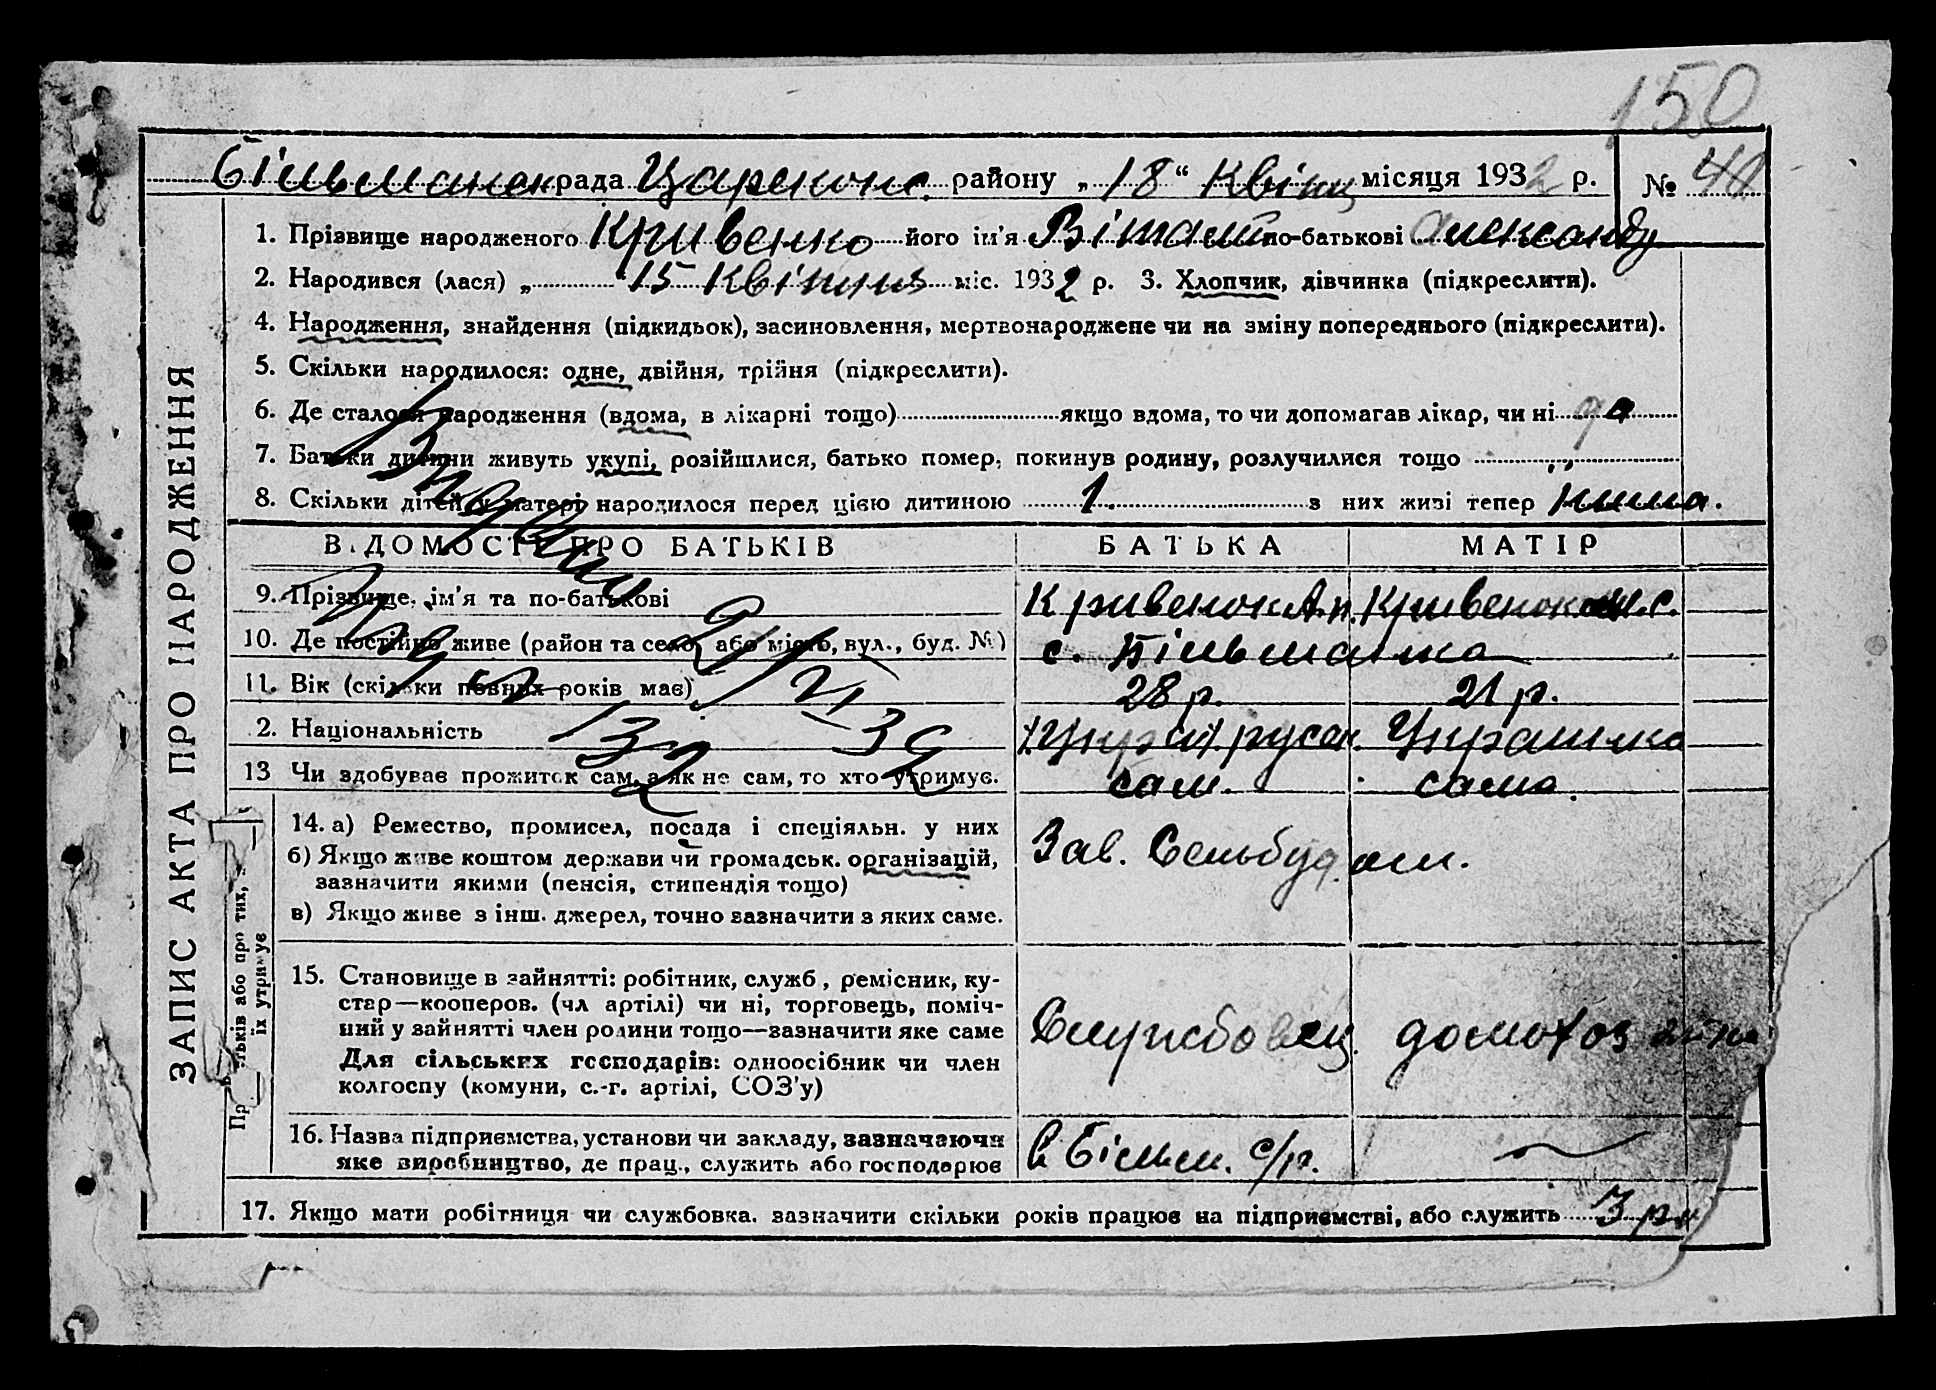 150
рада району „ 18 “ Квітн місяця 1932 р. №
1. Прізвище народженого Кривенко його ім’я Віталій по-батькові Александр
2. Народився (лася) „ 15 Квітня міс. 1932 р. 3. Хлопчик, дівчинка (підкреслити).
4. Народження, знайдення (підкидьок), засиновлення, мертвонароджене чи на зміну попереднього (підкреслити).
5. Скільки народилося: одне, двійня, трійня (підкреслити).
6. Де сталося народження (вдома, в лікарні тощо) якщо вдома, то чи допомагав лікар, чи ні да
7. Батьки дитини живуть укупі, розійшлися, батько помер, покинув родину, розлучилися тощо „
8. Скільки дітей у матері народилося перед цією дитиною 1. з них живі тепер
ВІДОМОСТІ ПРО БАТЬКІВ БАТЬКА МАТІР
9. Прізвище, ім’я та по-батькові
10. Де постійно живе (район та село, або місто, вул., буд. №) с. Більманка
11. Вік (скільки повних років має) 28 р. 21 р.
2. Національність Українка
13 Чи здобуває прожиток сам, а як не сам, то хто утримує. сам. сама.
14. а) Ремество, промисел, посада і спеціяльн. у них Зав. Сельбудом.
б) Якщо живе коштом держави чи громадськ. організацій,
зазначити якими (пенсія, стипендія тощо)
в) Якщо живе з інш. джерел, точно зазначити з яких саме.
15. Становище в зайнятті: робітник, служб, ремісник, ку-
стар—кооперов. (чл артілі) чи ні, торговець, поміч-
ний у зайнятті член родини тощо—зазначити яке саме Службовец. домохоз
Для сільських господарів: одноосібник чи член
колгоспу (комуни, с.-г. артілі, СОЗ’у)
16. Назва підприємства, установи чи закладу, зазначаючи в Більм. с/р.
яке виробництво, де прац., служить або господарює
17. Якщо мати робітниця чи службовка. зазначити скільки років працює на підприємстві, або служить 3 р
ЗАПИС АКТА ПРО НАРОДЖЕННЯ
або про тих,
їх утримує